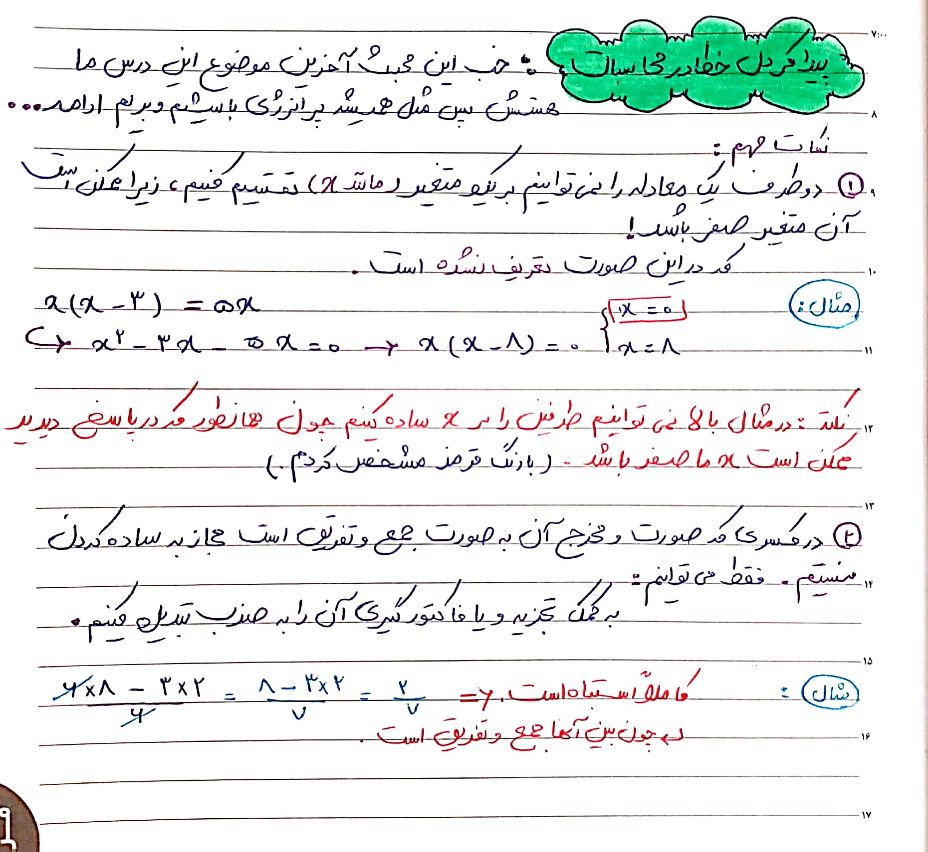 ۷:۰۰
پیدا کردن خطا در محاسبات : خب این مبحث آخرین موضوع این درس ما
هستش پس مثل همیشه پر انرژی باشیم و بریم ادامه...
۸
نکات مهم :
① دو طرف یک معادله را نمی توانیم بر یک متغیر (مانند x) تقسیم کنیم، زیرا ممکن است
۹
آن متغیر صفر باشد!
که در این صورت تعریف نشده است.
۱۰
مثال:
x(x - ۳) = ۵x
x = ۰
↪ x² - ۳x - ۵x = ۰ → x(x - ۸) = ۰ x = ۸
۱۱
نکته : در مثال بالا نمی توانیم طرفین را بر x ساده کنیم چون همانطور که در پاسخ دیدید
۱۲
ممکن است x ما صفر باشد. (با رنگ قرمز مشخص کردم.)
۱۳
② در کسری که صورت و مخرج آن به صورت جمع و تفریق است مجاز به ساده کردن
نیستیم. فقط می توانیم :
۱۴
به کمک تجزیه و یا فاکتور گیری آن را به ضرب تبدیل کنیم.
۱۵
مثال :
= ۸ - ۳×۲ / ۷ = ۲ / ۷
کاملاً اشتباه است.
↳ چون بین آنها جمع و تفریق است.
۱۶
۱۷